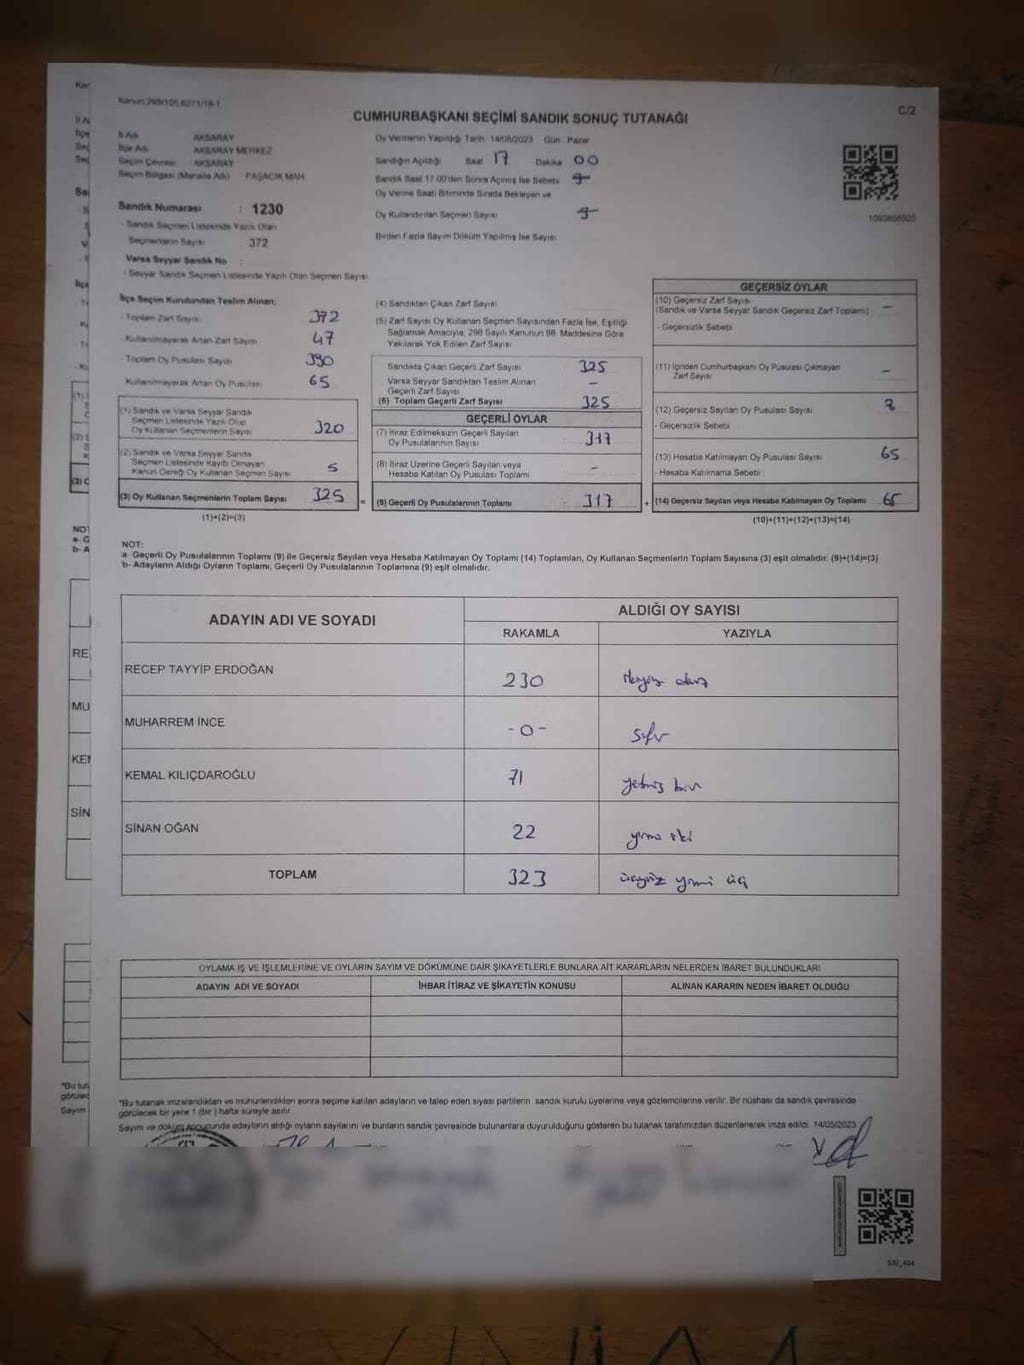 CUMHURBAŞKANI SEÇİMİ SANDIK SONUÇ TUTANAĞI
C/2
İl Adı AKSARAY
İlçe Adı AKSARAY MERKEZ
Seçim Çevresi AKSARAY
Seçim Bölgesi (Mahalle Adı) PAŞACIK MAH.
Oy Vermenin Yapıldığı Tarih 14/05/2023 Gün Pazar
Sandığın Açıldığı Saat 17 Dakika 00
Sandık Saat 17.00'den Sonra Açılmış İse Sebebi
Oy Verme Saati Bitiminde Sırada Bekleyen ve
Oy Kullandırılan Seçmen Sayısı
Birden Fazla Sayım Döküm Yapılmış İse Sayısı
Sandık Numarası : 1230
- Sandık Seçmen Listesinde Yazılı Olan
Seçmenlerin Sayısı 372
Varsa Seyyar Sandık No :
- Seyyar Sandık Seçmen Listesinde Yazılı Olan Seçmen Sayısı
İlçe Seçim Kurulundan Teslim Alınan;
- Toplam Zarf Sayısı 372
- Kullanılmayarak Artan Zarf Sayısı 47
- Toplam Oy Pusulası Sayısı 390
Kullanılmayarak Artan Oy Pusulası 65
(1) Sandık ve Varsa Seyyar Sandık
Seçmen Listesinde Yazılı Olup
Oy Kullanan Seçmenlerin Sayısı 320
(2) Sandık ve Varsa Seyyar Sandık
Seçmen Listesinde Kayıtlı Olmayan
Kanun Gereği Oy Kullanan Seçmen Sayısı 5
(3) Oy Kullanan Seçmenlerin Toplam Sayısı 325 =
(1)+(2)=(3)
(4) Sandıktan Çıkan Zarf Sayısı
(5) Zarf Sayısı Oy Kullanan Seçmen Sayısından Fazla İse, Eşitliği
Sağlamak Amacıyla, 298 Sayılı Kanunun 98. Maddesine Göre
Yakılarak Yok Edilen Zarf Sayısı
Sandıkta Çıkan Geçerli Zarf Sayısı 325
Varsa Seyyar Sandıktan Teslim Alınan
Geçerli Zarf Sayısı -
(6) Toplam Geçerli Zarf Sayısı 325
GEÇERLİ OYLAR
(7) İtiraz Edilmeksizin Geçerli Sayılan
Oy Pusulalarının Sayısı 317
(8) İtiraz Üzerine Geçerli Sayılan veya
Hesaba Katılan Oy Pusulası Toplamı -
(9) Geçerli Oy Pusulalarının Toplamı 317 +
GEÇERSİZ OYLAR
(10) Geçersiz Zarf Sayısı
(Sandık ve Varsa Seyyar Sandık Geçersiz Zarf Toplamı) -
- Geçersizlik Sebebi
(11) İçinden Cumhurbaşkanı Oy Pusulası Çıkmayan
Zarf Sayısı -
(12) Geçersiz Sayılan Oy Pusulası Sayısı
- Geçersizlik Sebebi
(13) Hesaba Katılmayan Oy Pusulası Sayısı 65
- Hesaba Katılmama Sebebi
(14) Geçersiz Sayılan veya Hesaba Katılmayan Oy Toplamı 65
(10)+(11)+(12)+(13)=(14)
NOT:
a- Geçerli Oy Pusulalarının Toplamı (9) ile Geçersiz Sayılan veya Hesaba Katılmayan Oy Toplamı (14) Toplamları, Oy Kullanan Seçmenlerin Toplam Sayısına (3) eşit olmalıdır. (9)+(14)=(3)
b- Adayların Aldığı Oyların Toplamı, Geçerli Oy Pusulalarının Toplamına (9) eşit olmalıdır.
ADAYIN ADI VE SOYADI
ALDIĞI OY SAYISI
RAKAMLA YAZIYLA
RECEP TAYYİP ERDOĞAN 230
MUHARREM İNCE -0- sıfır
KEMAL KILIÇDAROĞLU 71 yetmiş bir
SİNAN OĞAN 22 yirmi iki
TOPLAM 323 üçyüz yirmi üç
OYLAMA İŞ VE İŞLEMLERİNE VE OYLARIN SAYIM VE DÖKÜMÜNE DAİR ŞİKAYETLERLE BUNLARA AİT KARARLARIN NELERDEN İBARET BULUNDUKLARI
ADAYIN ADI VE SOYADI İHBAR İTİRAZ VE ŞİKAYETİN KONUSU ALINAN KARARIN NEDEN İBARET OLDUĞU
*Bu tutanak imzalandıktan ve mühürlendikten sonra seçime katılan adayların ve talep eden siyasi partilerin sandık kurulu üyelerine veya gözlemcilerine verilir. Bir nüshası da sandık çevresinde
görülecek bir yere 1 (bir) hafta süreyle asılır.
Sayım ve döküm sonucunda adayların aldığı oyların sayılarını ve bunların sandık çevresinde bulunanlara duyurulduğunu gösteren bu tutanak tarafımızdan düzenlenerek imza edildi. 14/05/2023